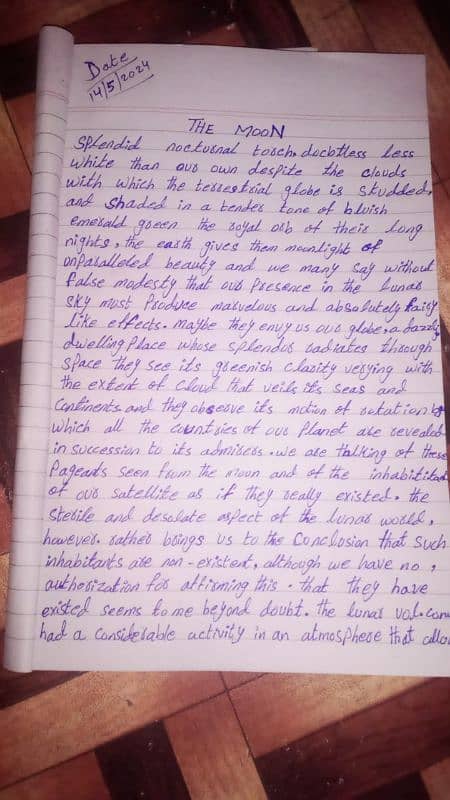 Date
14/5/2024
THE MOON
Splendid nocturnal torch. doubtless less
white than our own despite the clouds
with which the terrestrial globe is studded,
and shaded in a tender tone of bluish
emerald green the royal orb of their long
nights, the earth gives them moonlight of
onparalleled beauty and we many say without
false modesty that our presence in the lunar
sky must produce marvelous and absolutely fairy
like effects. maybe they envy us our globe, a dazzli
dwelling place whose splendur radiates through
space they see its greenish clarity verying with
the extent of cloud that veils its seas and
continents and they observe its motion of rutation by
which all the countries of our planet are revealed
in succession to its admirers. we are thalking of these
pageants seen from the moon and of the inhabititants
of our satellite as if they really existed. the
sterile and desolate aspect of the lunar world,
however. rather brings us to the conclosion that such
inhabitants are non-existent, although we have no,
authorization for affirming this. that they have
existed seems to me beyond doubt. the lunar vol.cano
had a considerable activity in an atmosphere that allo